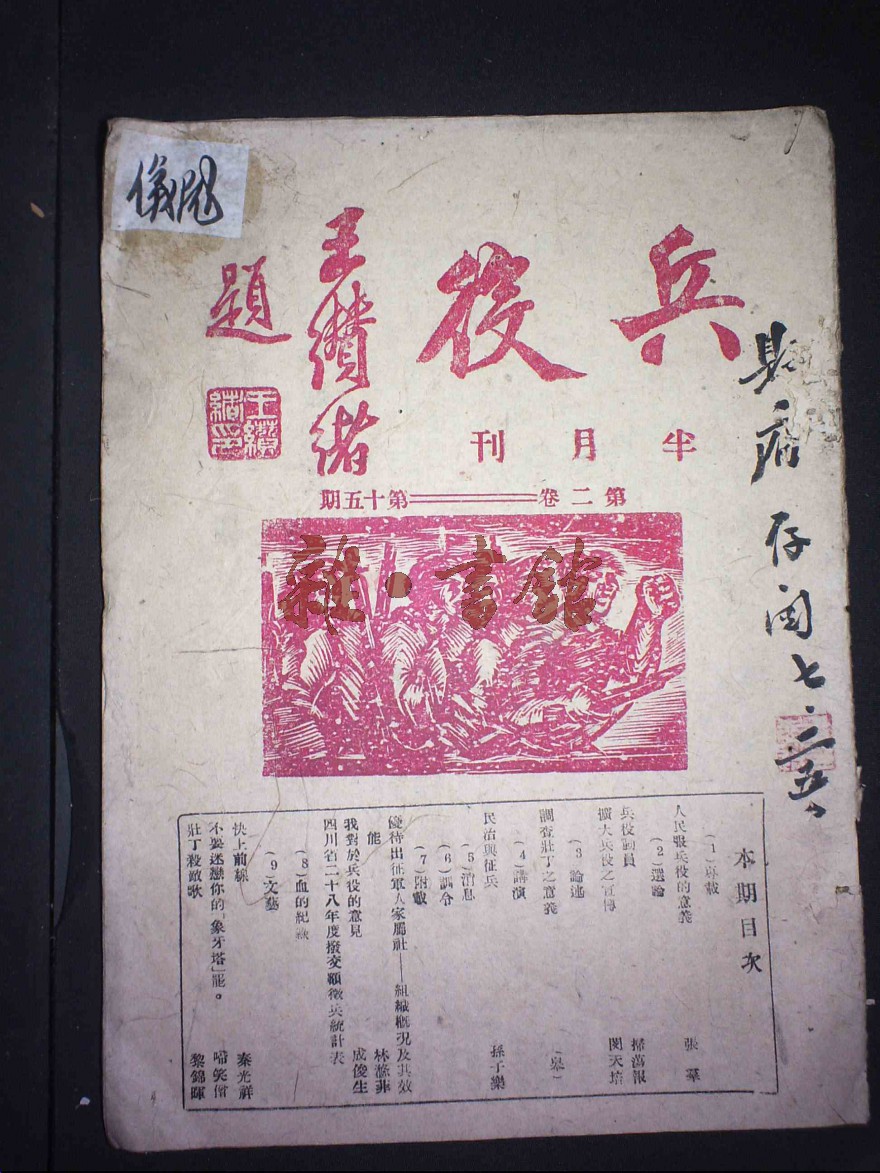 兵役
半月刊
王纘緒
題
王纘緒印
第二卷══第十五期
雜·書館
本期目次
(1)專載
人民服兵役的意義 張羣
(2)選論
兵役動員 掃蕩報
擴大兵役之宣傳 閔天培
(3)論述
調查壯丁之意義 (皋)
(4)講演
民治與征兵 孫子樂
(5)消息
(6)訓令
(7)附載
優待出征軍人家屬社——組織概況及其效
能 林滌非
我對於兵役的意見 成俊生
四川省二十八年度撥交額徵兵統計表
(8)血的紀錄
(9)文藝
快上前線 秦光祥
不要迷戀你的「象牙塔」罷。 啼笑僧
壯丁殺敵歌 黎錦暉
存閱七·二五